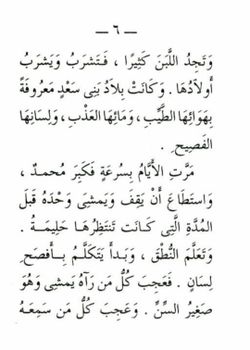 — ٦ —
وَتَجِدُ اللَّبَنَ كَثِيرًا ، فَتَشْرَبُ وَيَشْرَبُ
أَولَادُهَا . وَكَانَتْ بِلَادُ بَنِى سَعْدٍ مَعرُوفَةً
بِهَوَائِهَا الطَّيِّبِ ، وَمَائِهَا العَذْبِ ، وَلِسَانِهَا
الفَصِيحِ .
مَرَّتِ الأَيَّامُ بِسُرعَةٍ فَكَبِرَ محمدٌ ،
وَاستَطَاعَ أَنْ يَقِفَ وَيَمشِىَ وَحْدَهُ قَبلَ
المُدَّةِ الَّتِى كَانت تَنتَظِرُهَا حَلِيمَةُ .
وَتَعَلَّمَ النُّطْقَ ، وَبَدَأَ يَتَكَلَّمُ بِأَفصَحِ
لِسَانٍ . فَعَجِبَ كُلُّ مَن رَآهُ يَمشِى وَهُوَ
صَغِيرُ السِّنِّ . وَعَجِبَ كُلُّ مَن سَمِعَهُ